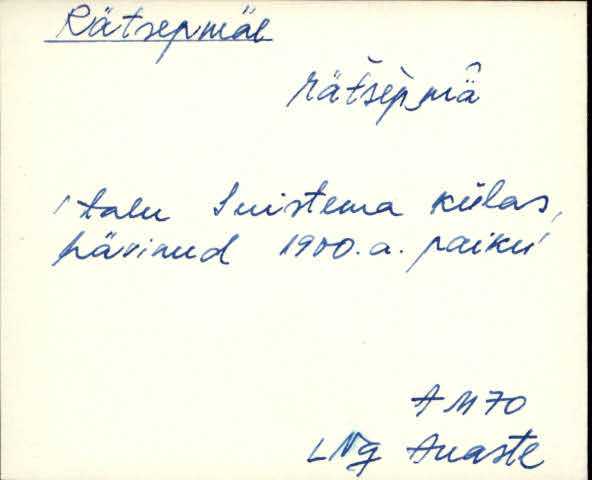 Rätsepmäe
rätsèp̀mä̂
talu Suistema külas,
hävinud 1900.a. paiku
AM70
LNg Anaste